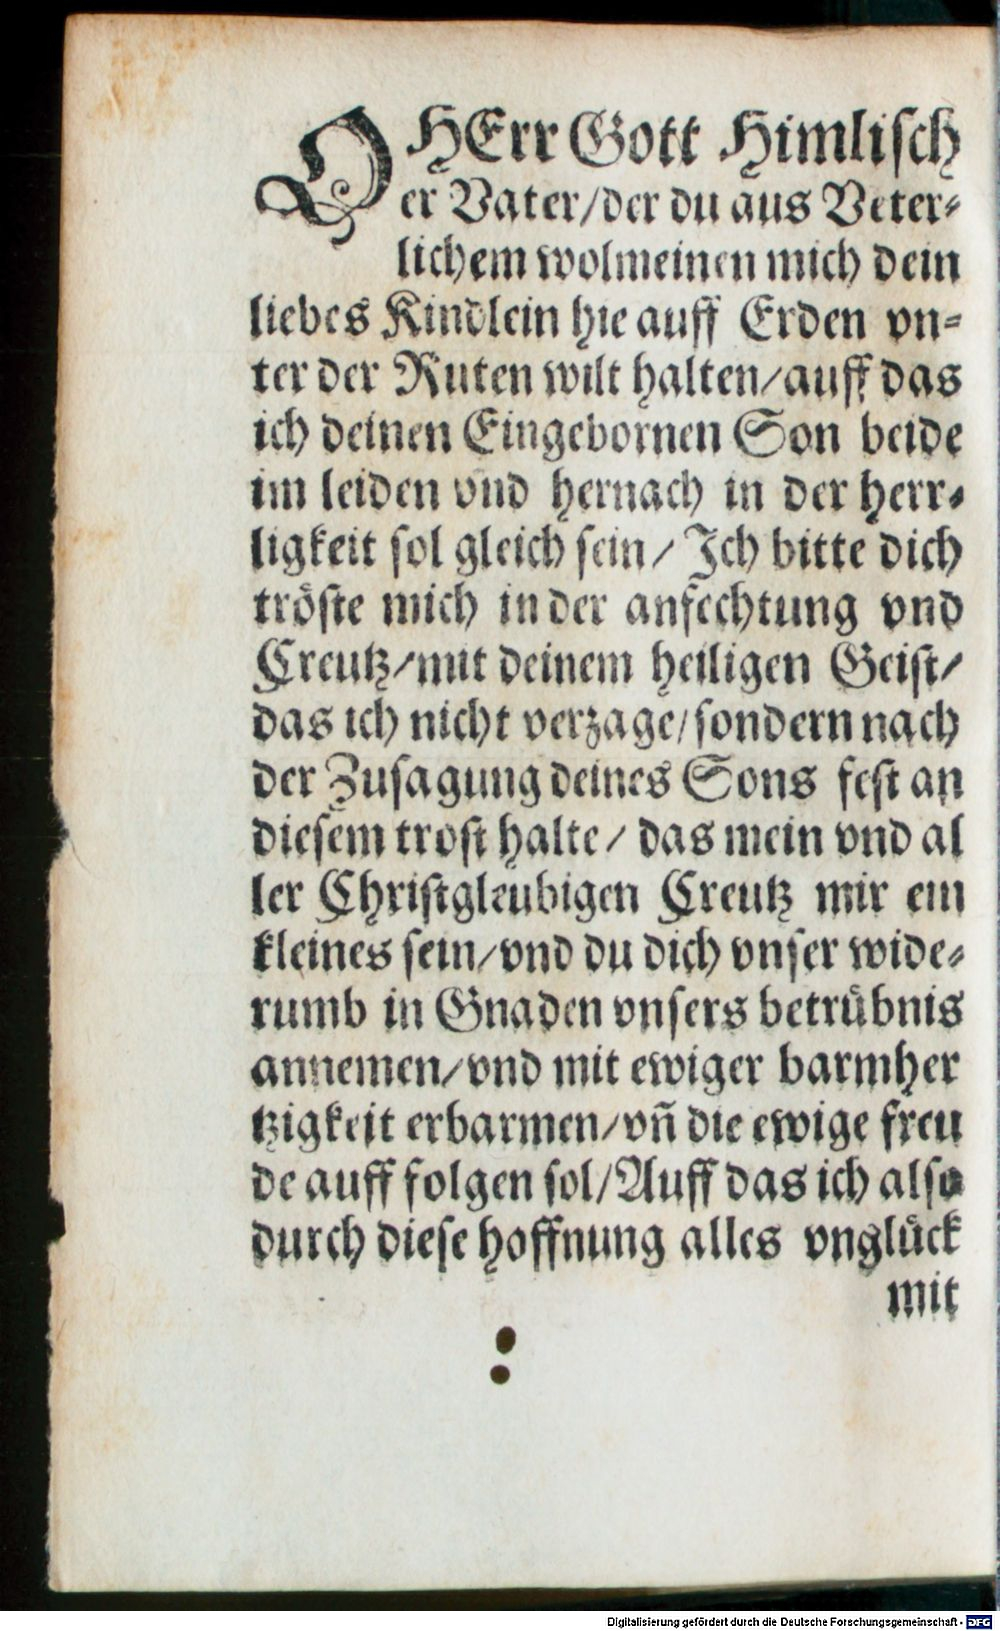 O HErr Gott Himlisch
er Vater/der du aus Veter-
lichem wolmeinen mich dein
liebes Kindlein hie auff Erden vn-
ter der Ruten wilt halten/auff das
ich deinen Eingebornen Son beide
im leiden vnd hernach in der herr-
ligkeit sol gleich sein/ Ich bitte dich
tröste mich in der anfechtung vnd
Creutz/mit deinem heiligen Geist/
das ich nicht verzage/sondern nach
der Zusagung deines Sons fest an
diesem trost halte/ das mein vnd al
ler Christgleubigen Creutz mir ein
kleines sein/vnd du dich vnser wide-
rumb in Gnaden vnsers betrübnis
annemen/vnd mit ewiger barmher
tzigkeit erbarmen/vñ die ewige freu
de auff folgen sol/Auff das ich also
durch diese hoffnung alles vnglück
mit
Digitalisierung gefördert durch die Deutsche Forschungsgemeinschaft - DFG